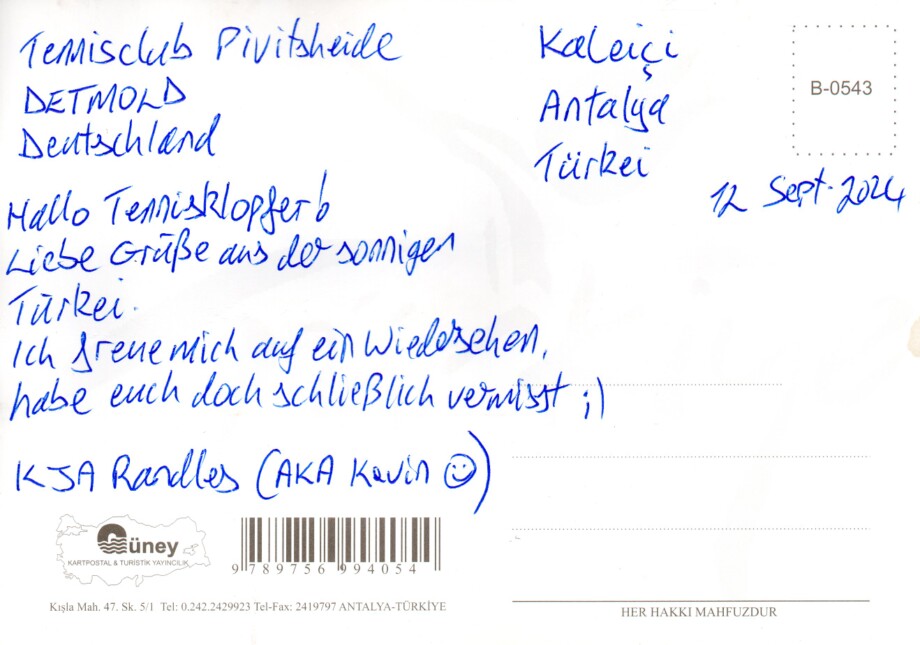 Tennisclub Pivitsheide
DETMOLD
Deutschland
Kaleiçi
Antalya
Türkei
B-0543
12 Sept. 2024
Hallo Tennisklopfer!
Liebe Grüße aus der sonnigen
Türkei.
Ich freue mich auf ein Wiedersehen,
habe euch doch schließlich vermisst ;)
KJA Randles (AKA Kevin ☺)
Güney
KARTPOSTAL & TURİSTİK YAYINCILIK
9 789756 994054
Kışla Mah. 47. Sk. 5/1 Tel: 0.242.2429923 Tel-Fax: 2419797 ANTALYA-TÜRKİYE
HER HAKKI MAHFUZDUR